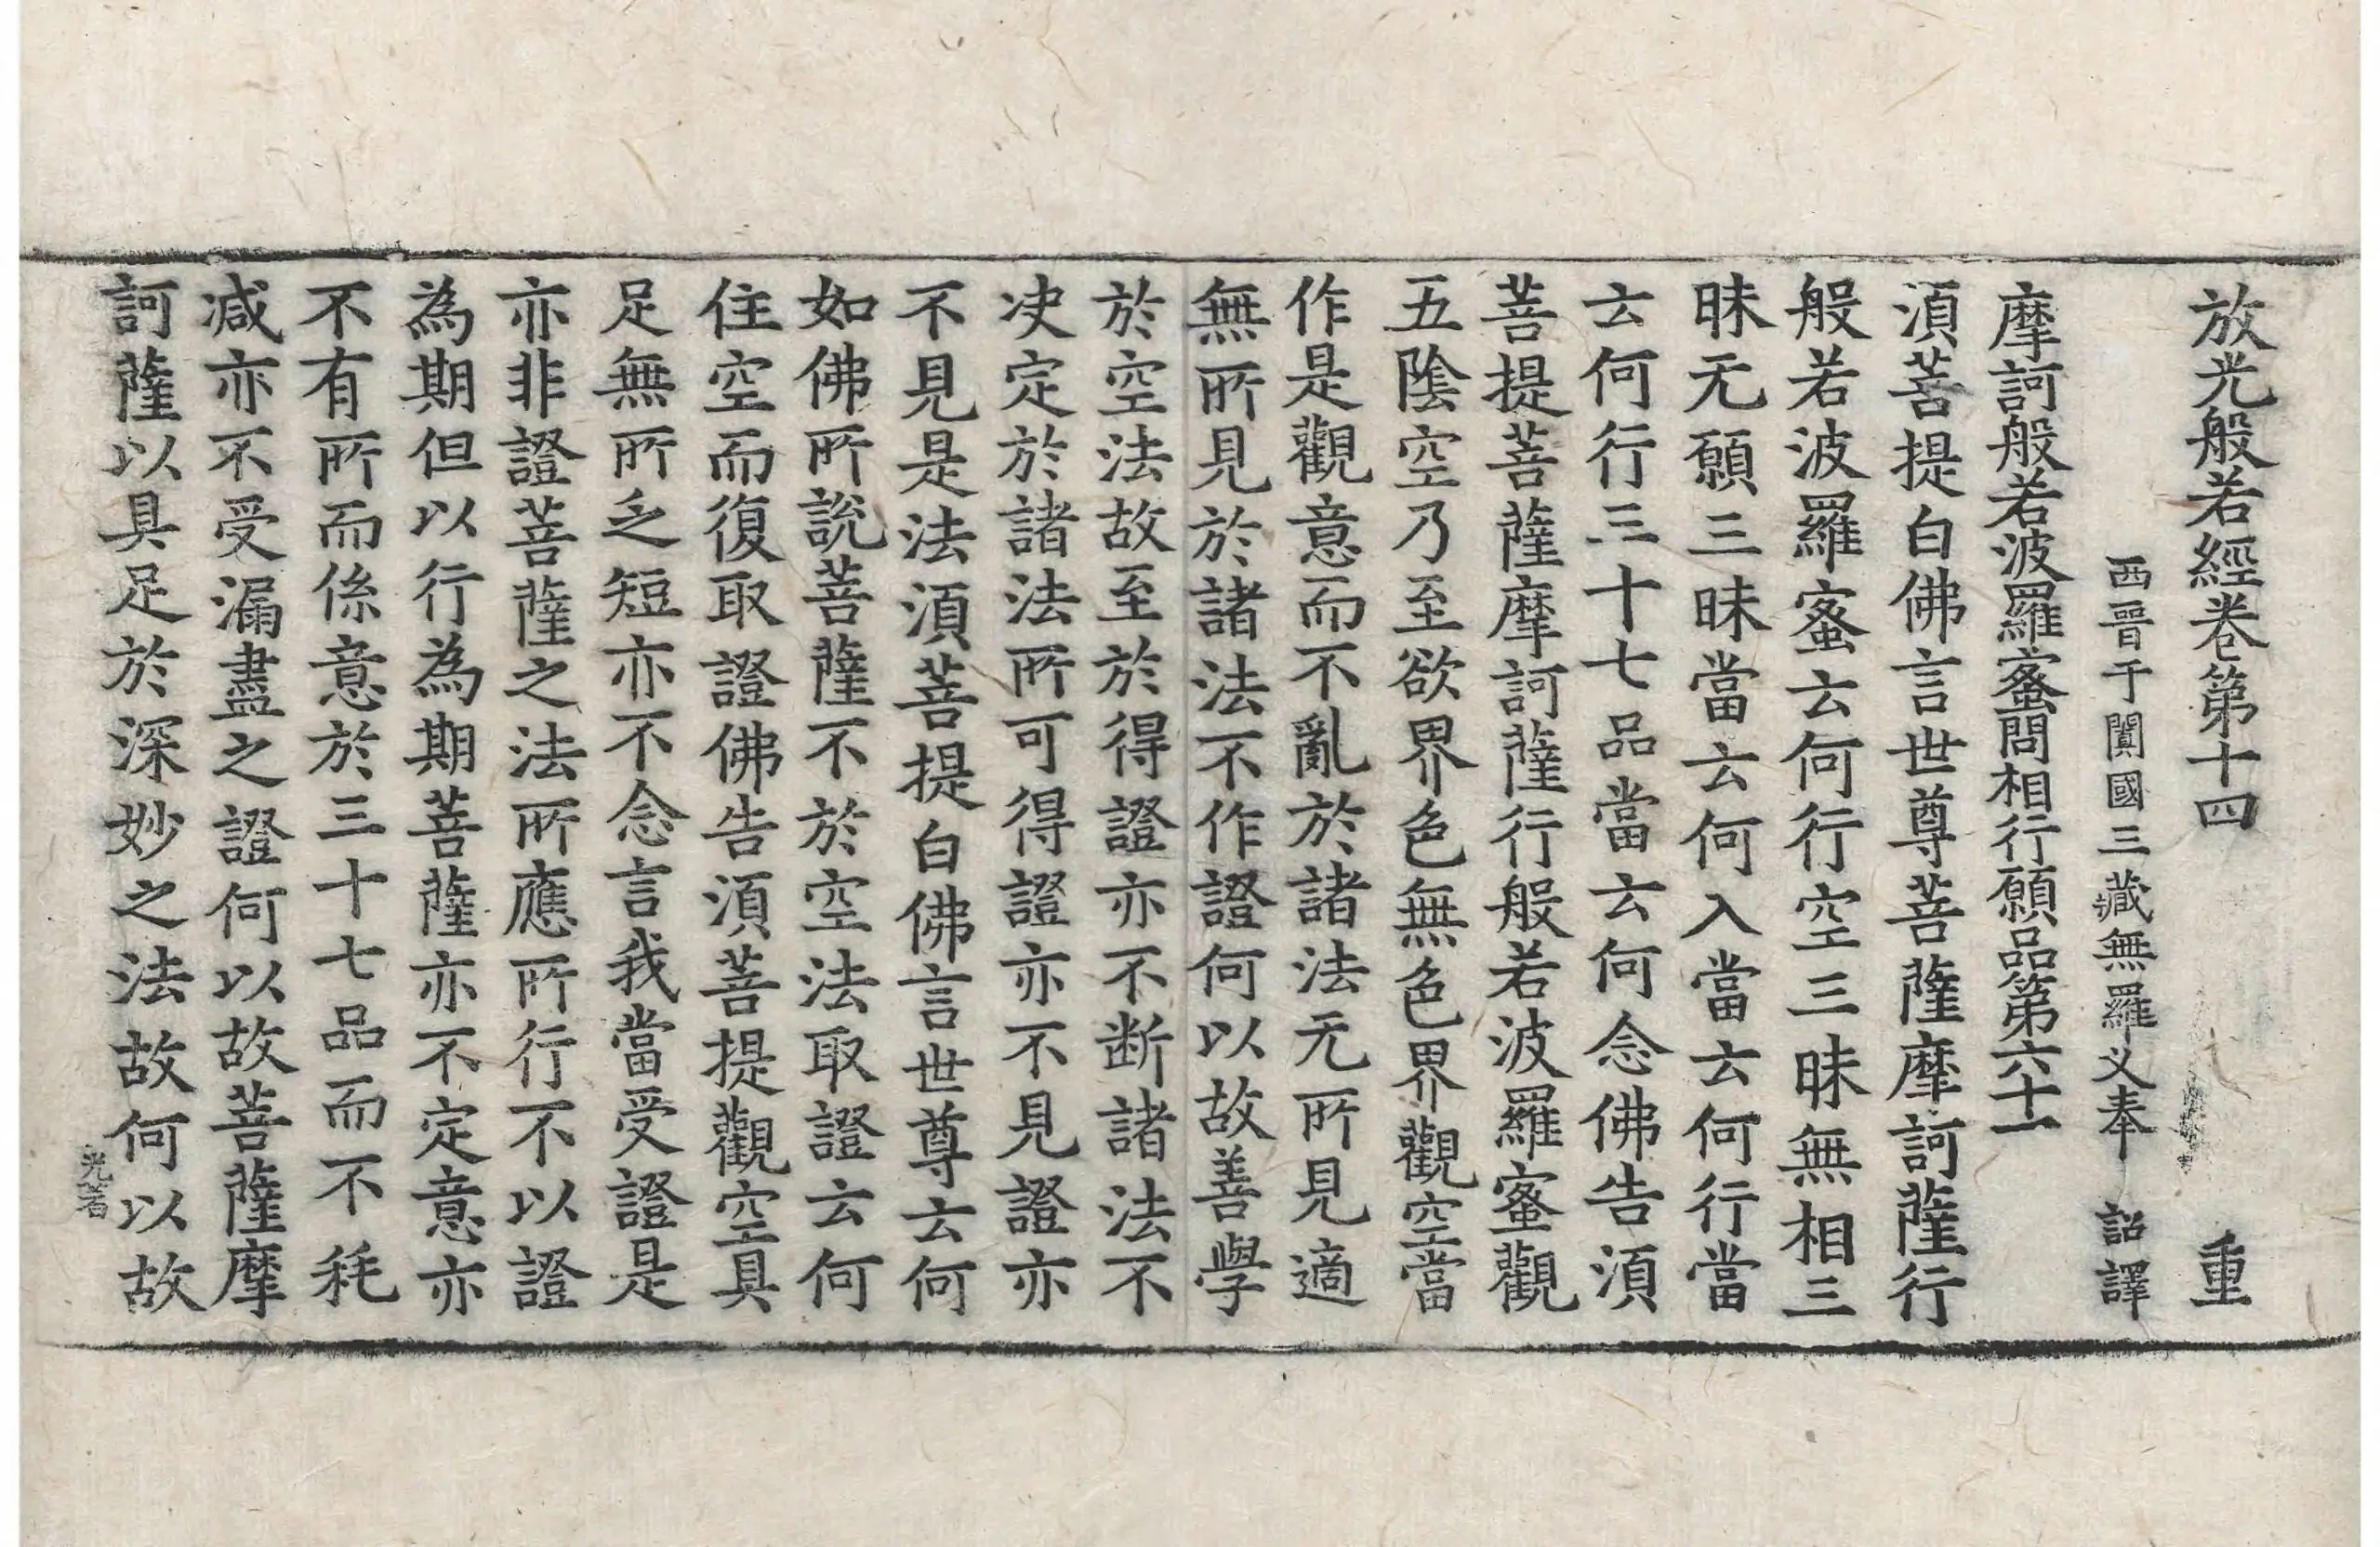 放光般若經卷第十四 重
西晉于闐國三藏無羅叉奉 詔譯
摩訶般若波羅蜜問相行願品第六十一
須菩提白佛言世尊菩薩摩訶薩行
般若波羅蜜云何行空三昧無相三
昧无願三昧當云何入當云何行當
云何行三十七品當云何念佛告須
菩提菩薩摩訶薩行般若波羅蜜觀
五陰空乃至欲界色無色界觀空當
作是觀意而不亂於諸法无所見適
無所見於諸法不作證何以故善學
於空法故至於得證亦不断諸法不
决定於諸法所可得證亦不見證亦
不見是法須菩提白佛言世尊云何
如佛所說菩薩不於空法取證云何
住空而復取證佛告須菩提觀空具
足無所乏短亦不念言我當受證是
亦非證菩薩之法所應所行不以證
為期但以行為期菩薩亦不定意亦
不有所而係意於三十七品而不耗
减亦不受漏盡之證何以故菩薩摩
訶薩以具足於深妙之法故何以故
光若